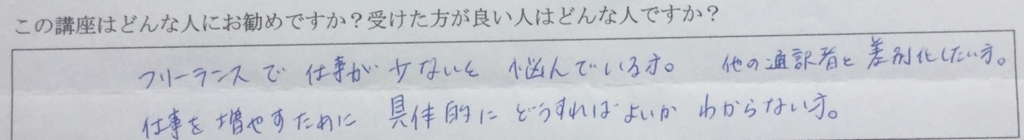 この講座はどんな人にお勧めですか？受けた方が良い人はどんな人ですか？
フリーランスで 仕事が少ないと 悩んでいる方。 他の通訳者と差別化したい方。
仕事を増やすために 具体的に どうすればよいか わからない方。